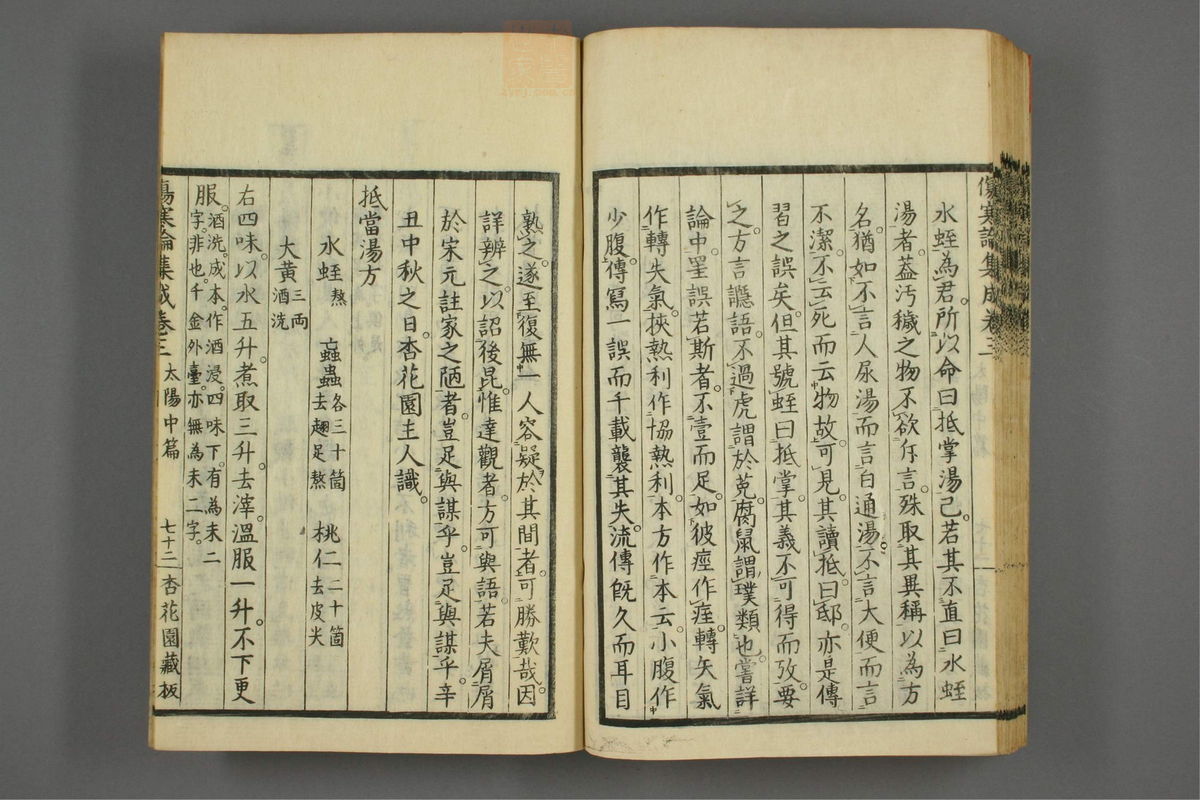 傷寒論集成卷三
水蛭為君。所以命曰抵掌湯已。若其不直曰水蛭
湯者。蓋汚穢之物不欲斥言。殊取其異稱以為方
名。猶如不言人尿湯而言白通湯。不言大便而言
不潔。不云死而云物故。可見。其讀抵。曰邸。亦是傳
習之誤矣。但其號蛭曰抵掌。其義不可得而攷。要
之方言讔語。不過虎謂於菟。腐鼠謂璞類也。嘗詳
論中。罣誤若斯者。不壹而足。如彼痙作痓。轉矢氣
作轉失氣。挾熱利作協熱利。本方作本云。小腹作
少腹。傳寫一誤而千載襲其失。流傳旣久而耳目
熟之。遂至復無一人容疑於其間者。可勝歎哉。因
詳辨之。以詔後昆。惟達觀者。方可與語。若夫屑屑
於宋元註家之陋者。豈足與謀乎。豈足與謀乎。辛
丑中秋之日。杏花園主人識。
抵當湯方
水蛭熬 蝱蟲各三十箇去翅足熬 桃仁二十箇去皮尖
大黃三兩酒洗
右四味。以水五升。煮取三升。去滓。溫服一升。不下更
服。酒洗。成本作酒浸。四味下。有為末二
字。非也。千金外臺。亦無為末二字。
傷寒論集成卷三 太陽中篇 七十三 杏花園藏板